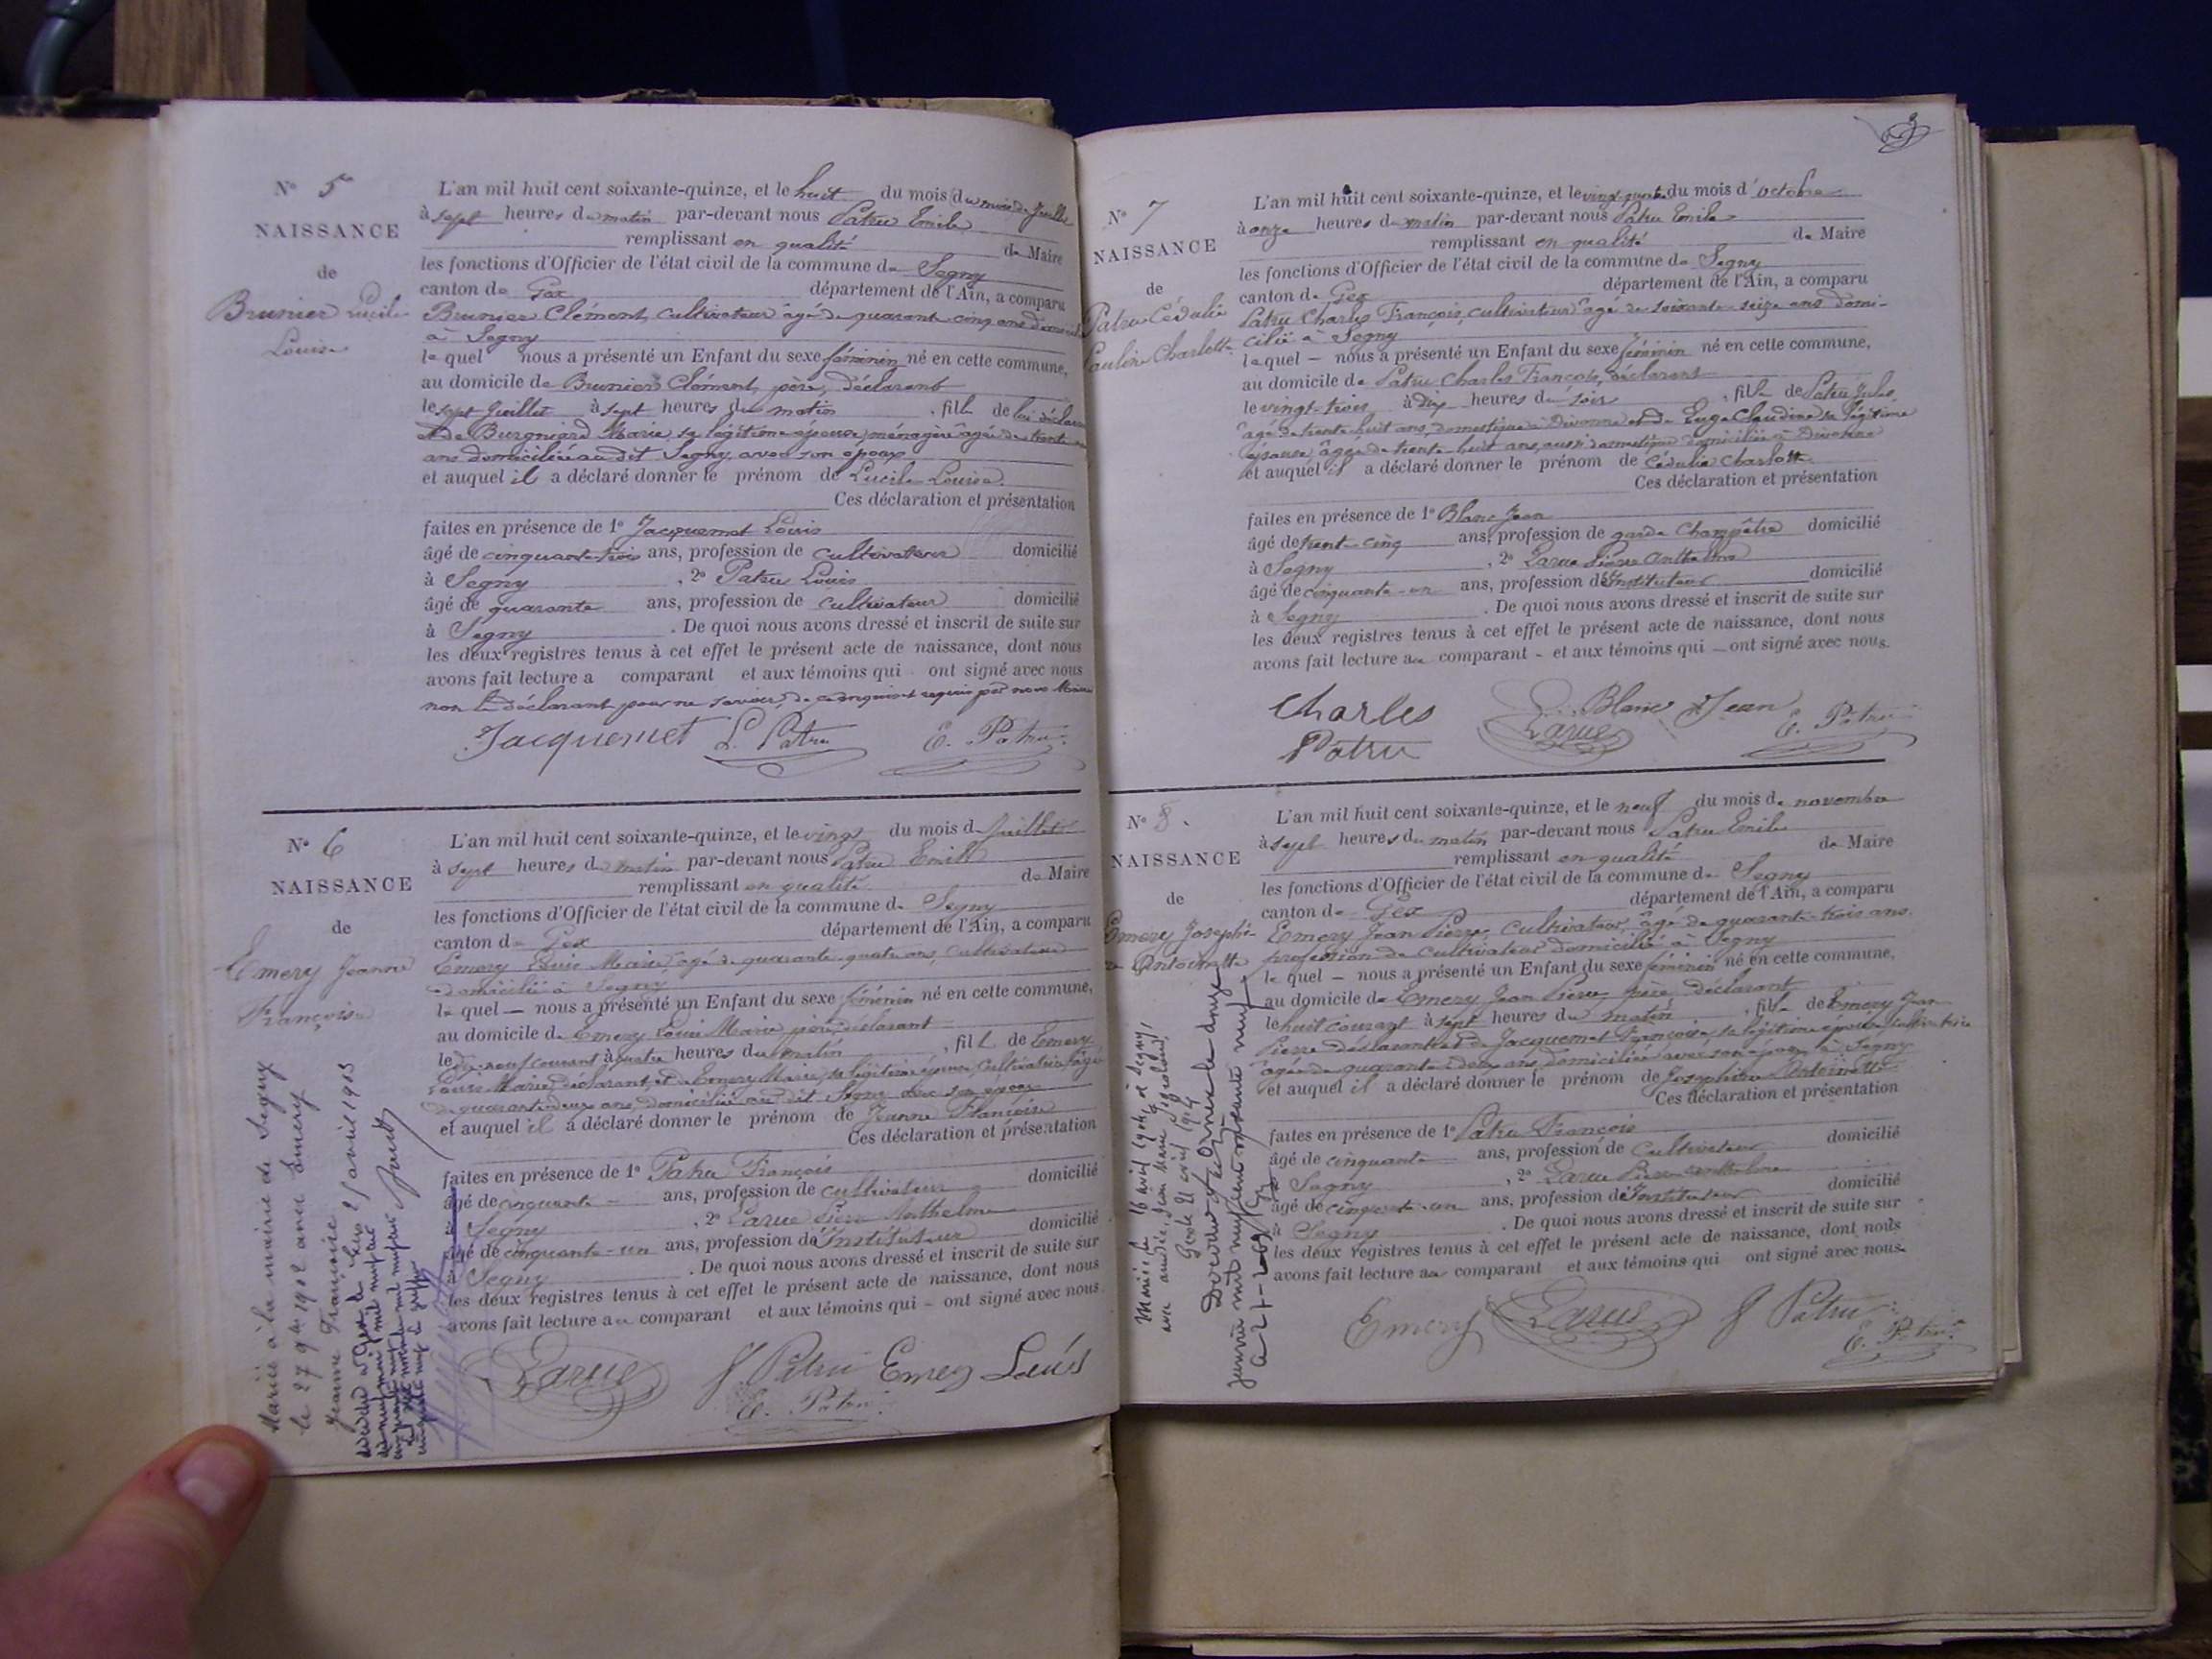 N° 5
NAISSANCE
de
Brunier Lucile
Louise
L'an mil huit cent soixante-quinze, et le huit du mois du mois de Juillet
à sept heures du matin par-devant nous Patru Emile
remplissant en qualité de Maire
les fonctions d'Officier de l'état civil de la commune de Segny
canton de Gex département de l'Ain, a comparu
Brunier Clément, cultivateur âgé de quarante cinq ans
à Segny
le quel nous a présenté un Enfant du sexe féminin né en cette commune,
au domicile de Brunier Clément, père, déclarant
le sept Juillet à sept heures du matin, fille de lui déclarant
et de Burgniard Marie, sa légitime épouse, ménagère âgée de trente
ans domiciliée au dit Segny avec son époux
et auquel il a déclaré donner le prénom de Lucile Louise.
Ces déclaration et présentation
faites en présence de 1° Jacquemet Louis
âgé de cinquante-trois ans, profession de cultivateur domicilié
à Segny, 2° Patru Louis
âgé de quarante ans, profession de cultivateur domicilié
à Segny. De quoi nous avons dressé et inscrit de suite sur
les deux registres tenus à cet effet le présent acte de naissance, dont nous
avons fait lecture a comparant et aux témoins qui ont signé avec nous
non le déclarant pour ne savoir, de ce enquis et requis par nous Maire
Jacquemet L. Patru E. Patru
N° 6
NAISSANCE
de
Emery Jeanne
Françoise
L'an mil huit cent soixante-quinze, et le vingt du mois de Juillet
à sept heures du matin par-devant nous Patru Emile
remplissant en qualité de Maire
les fonctions d'Officier de l'état civil de la commune de Segny
canton de Gex département de l'Ain, a comparu
Emery Louis Marie, âgé de quarante-quatre ans, cultivateur
domicilié à Segny
le quel — nous a présenté un Enfant du sexe féminin né en cette commune,
au domicile de Emery Louis Marie père, déclarant
le dix-neuf courant à quatre heures du matin, fille de Emery
Louis Marie, déclarant, et de Emery Marie, sa légitime épouse, cultivatrice, âgée
de quarante-deux ans, domiciliée au dit Segny avec son époux
et auquel il a déclaré donner le prénom de Jeanne Françoise
Ces déclaration et présentation
faites en présence de 1° Patru François
âgé de cinquante — ans, profession de cultivateur domicilié
à Segny, 2° Larue Pierre Anthelme
âgé de cinquante-un ans, profession d'Instituteur domicilié
à Segny. De quoi nous avons dressé et inscrit de suite sur
les deux registres tenus à cet effet le présent acte de naissance, dont nous
avons fait lecture au comparant et aux témoins qui — ont signé avec nous
Larue f Patru Emery Louis
E. Patru
Mariée à la mairie de Segny
le 27 9bre 1902 avec Emery
Jeanne Françoise
N° 7
NAISSANCE
de
Patru Cédulie
Pauline Charlotte
L'an mil huit cent soixante-quinze, et le vingt-quatre du mois d'octobre
à onze heures du matin par-devant nous Patru Emile
remplissant en qualité de Maire
les fonctions d'Officier de l'état civil de la commune de Segny
canton de Gex département de l'Ain, a comparu
Patru Charles François, cultivateur âgé de soixante-seize ans domi-
cilié à Segny
le quel — nous a présenté un Enfant du sexe féminin né en cette commune,
au domicile de Patru Charles François, déclarant
le vingt-trois à dix heures du soir, fille de Patru Jules
âgé de trente huit ans, domestique à Divonne et de Euga Claudine sa légitime
épouse, âgée de trente-huit ans, aussi domestique domiciliée à Divonne
et auquel il a déclaré donner le prénom de Cédulie Charlotte
Ces déclaration et présentation
faites en présence de 1° Blanc Jean
âgé de trente-cinq ans, profession de garde Champêtre domicilié
à Segny, 2° Larue Pierre Anthelme
âgé de cinquante-un ans, profession d'Instituteur domicilié
à Segny. De quoi nous avons dressé et inscrit de suite sur
les deux registres tenus à cet effet le présent acte de naissance, dont nous
avons fait lecture au comparant - et aux témoins qui — ont signé avec nous.
Charles Blanc Jean
Patru Larue E. Patru
N° 8.
NAISSANCE
de
Emery Joséphi-
ne Antoinette
L'an mil huit cent soixante-quinze, et le neuf du mois de novembre
à sept heures du matin par-devant nous Patru Emile
remplissant en qualité de Maire
les fonctions d'Officier de l'état civil de la commune de Segny
canton de Gex département de l'Ain, a comparu
Emery Jean Pierre, cultivateur, âgé de quarante-trois ans.
profession de cultivateur domicilié à Segny
le quel — nous a présenté un Enfant du sexe féminin né en cette commune,
au domicile de Emery Jean Pierre, père déclarant
le huit courant à sept heures du matin, fille de Emery Jean
Pierre déclarant et de Jacquemet Françoise, sa légitime épouse, cultivatrice
âgée de quarante-deux ans, domiciliée avec son époux à Segny
et auquel il a déclaré donner le prénom de Joséphine Antoinette
Ces déclaration et présentation
faites en présence de 1° Patru François
âgé de cinquante ans, profession de Cultivateur domicilié
à Segny, 2° Larue Pierre Anthelme
âgé de cinquante-un ans, profession d'Instituteur domicilié
à Segny. De quoi nous avons dressé et inscrit de suite sur
les deux registres tenus à cet effet le présent acte de naissance, dont nous
avons fait lecture au comparant et aux témoins qui ont signé avec nous.
Emery Larue f Patru
E. Patru
Mariée le 16 avril 1904, à Segny,
Décédée à Ornex le douze
janvier mil neuf cent soixante neuf